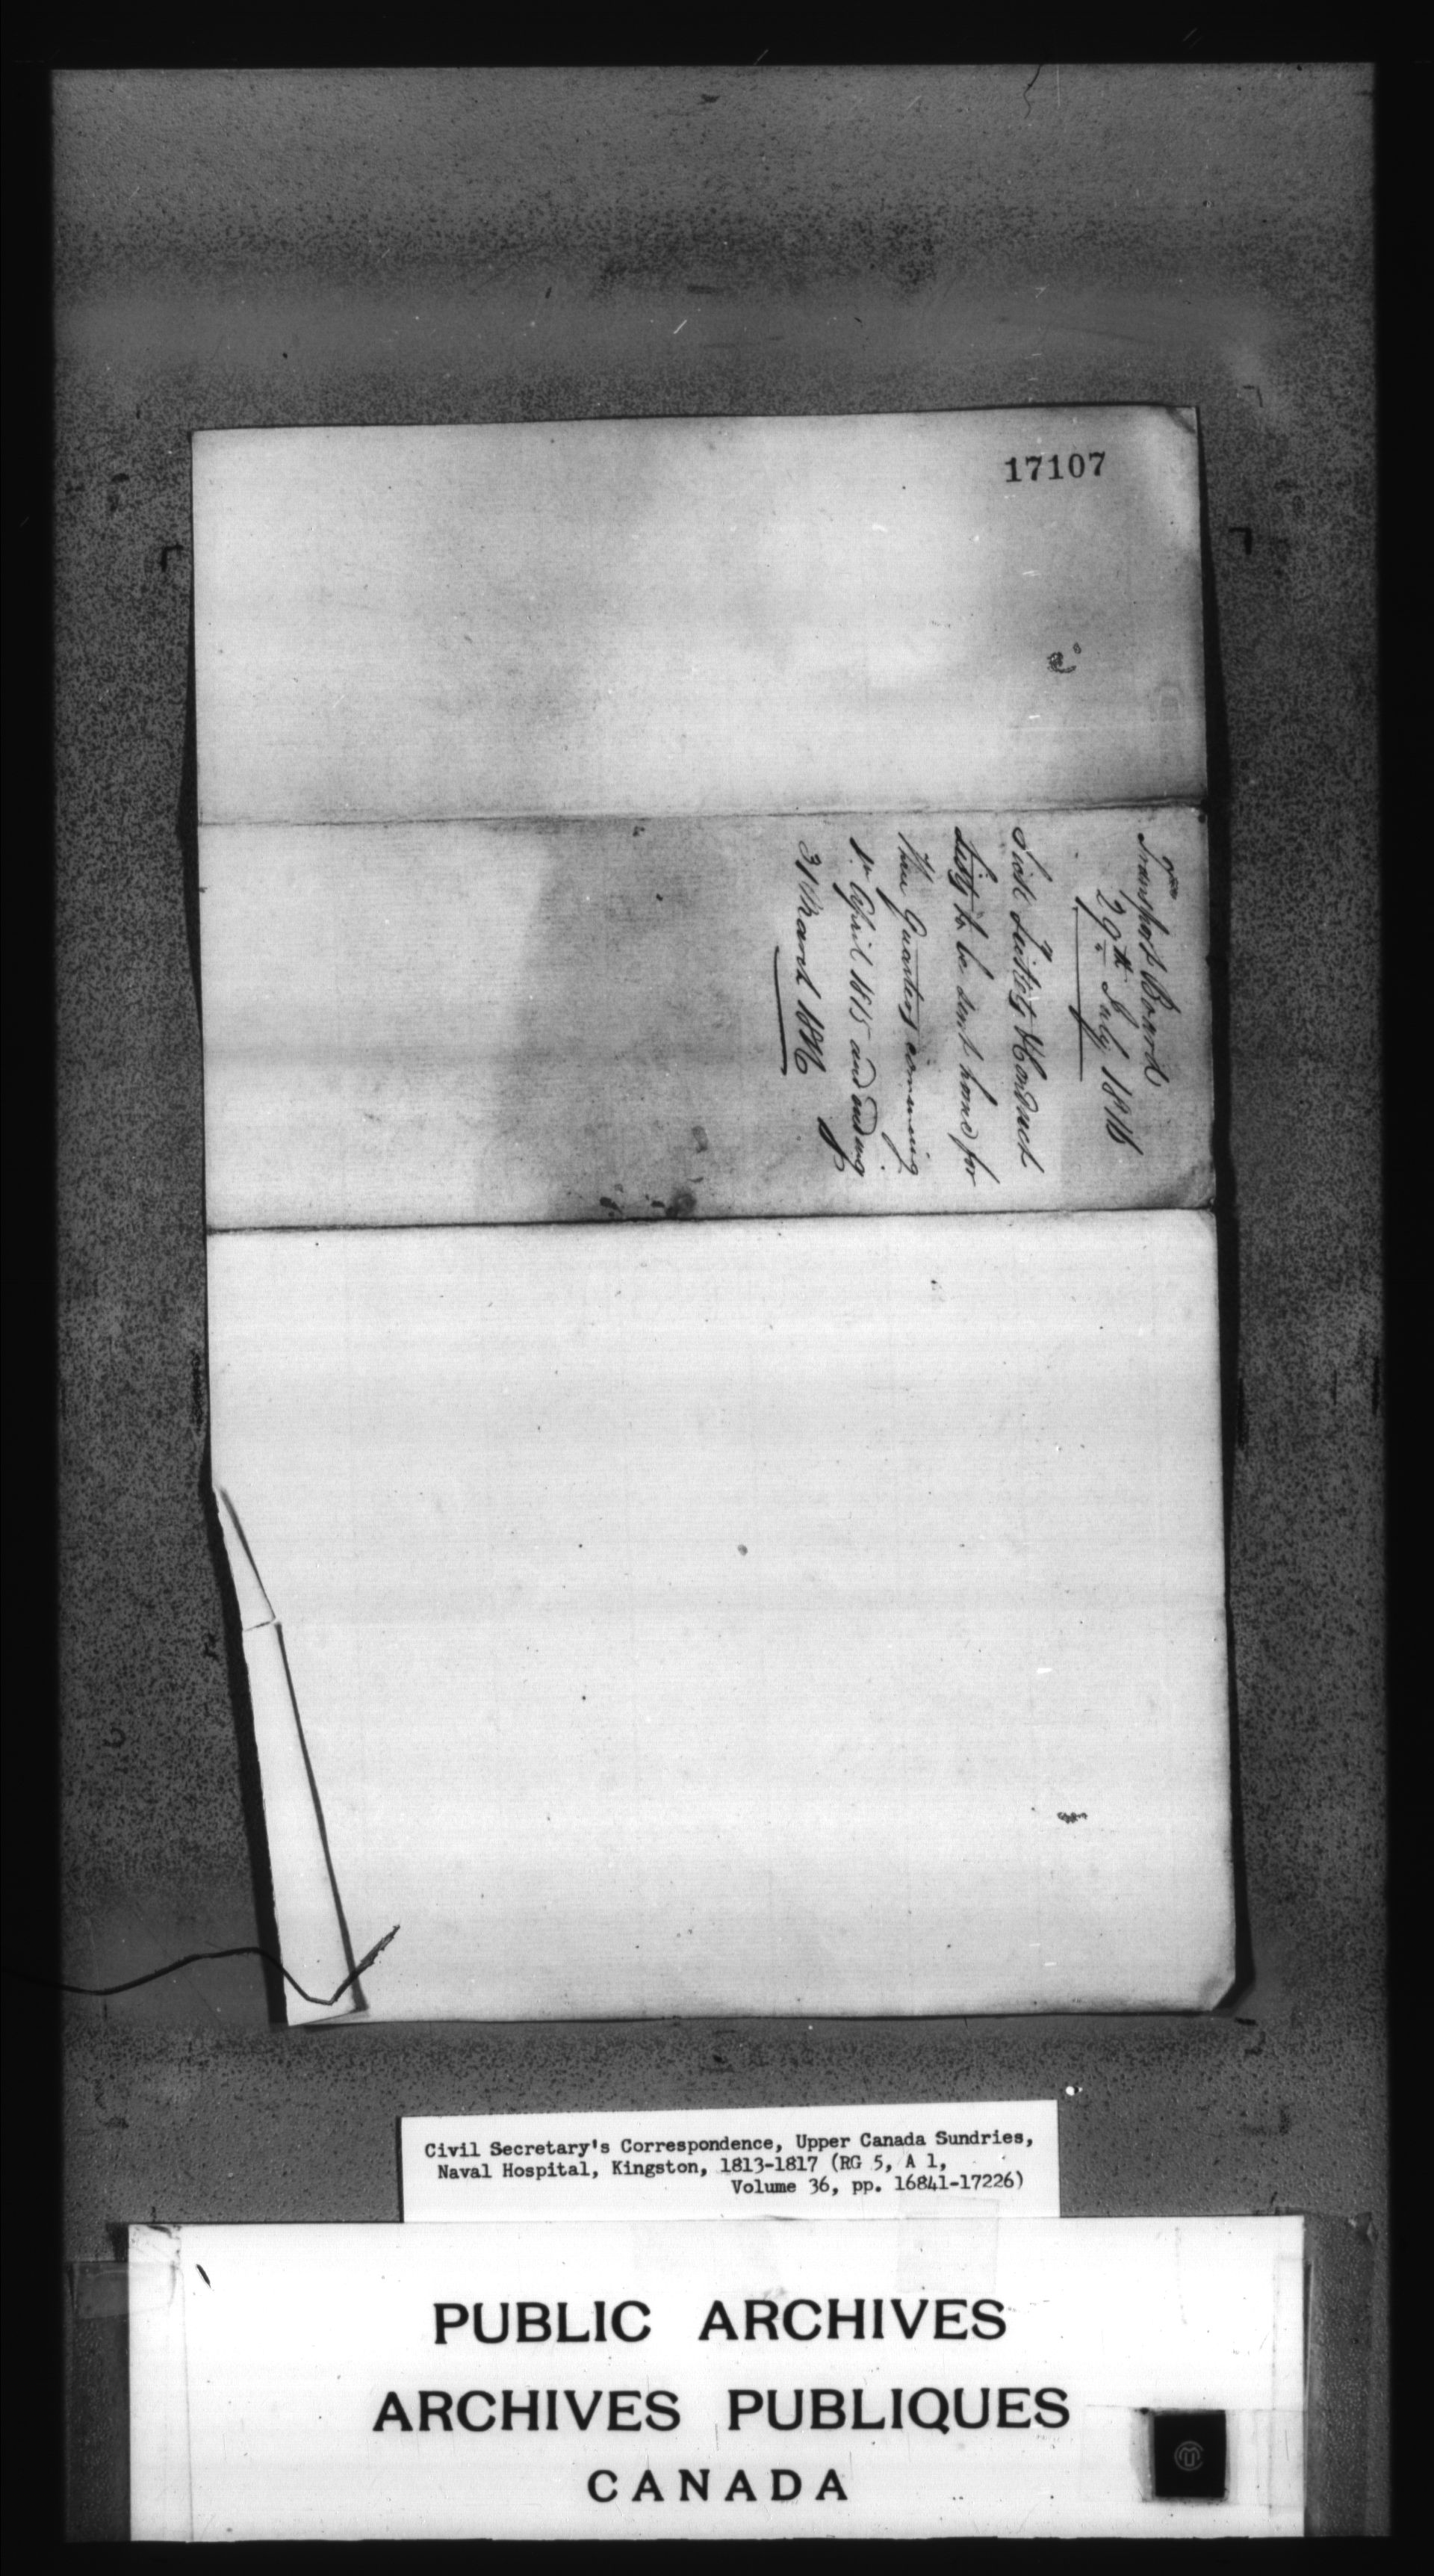 17107
Transport Board
29th July 1816
Sick Lists & Conduct
Lists to be sent home for
three Quarters commencing
1st April 1815 and Ending
31 March 1816
Civil Secretary's Correspondence, Upper Canada Sundries,
Naval Hospital, Kingston, 1813-1817 (RG 5, A 1,
Volume 36, pp. 16841-17226)
PUBLIC ARCHIVES
ARCHIVES PUBLIQUES
CANADA